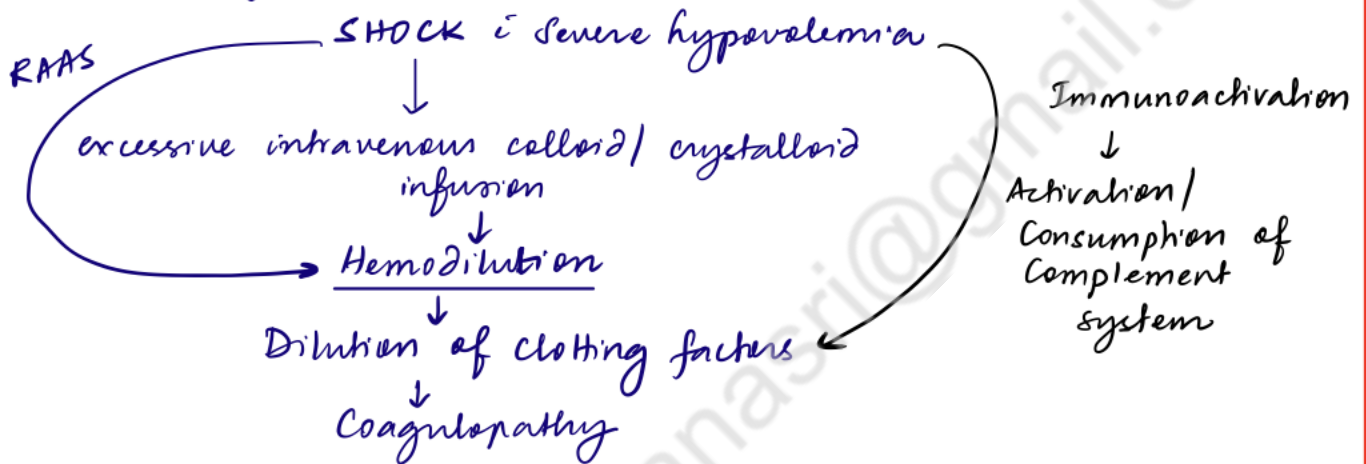 SHOCK c̄ severe hypovolemia
RAAS
↓
excessive intravenous colloid/ crystalloid
infusion
↓
Hemodilution
↓
Dilution of clotting factors
↓
Coagulopathy
Immunoactivation
↓
Activation/
Consumption of
Complement
system
nasri@gmail.